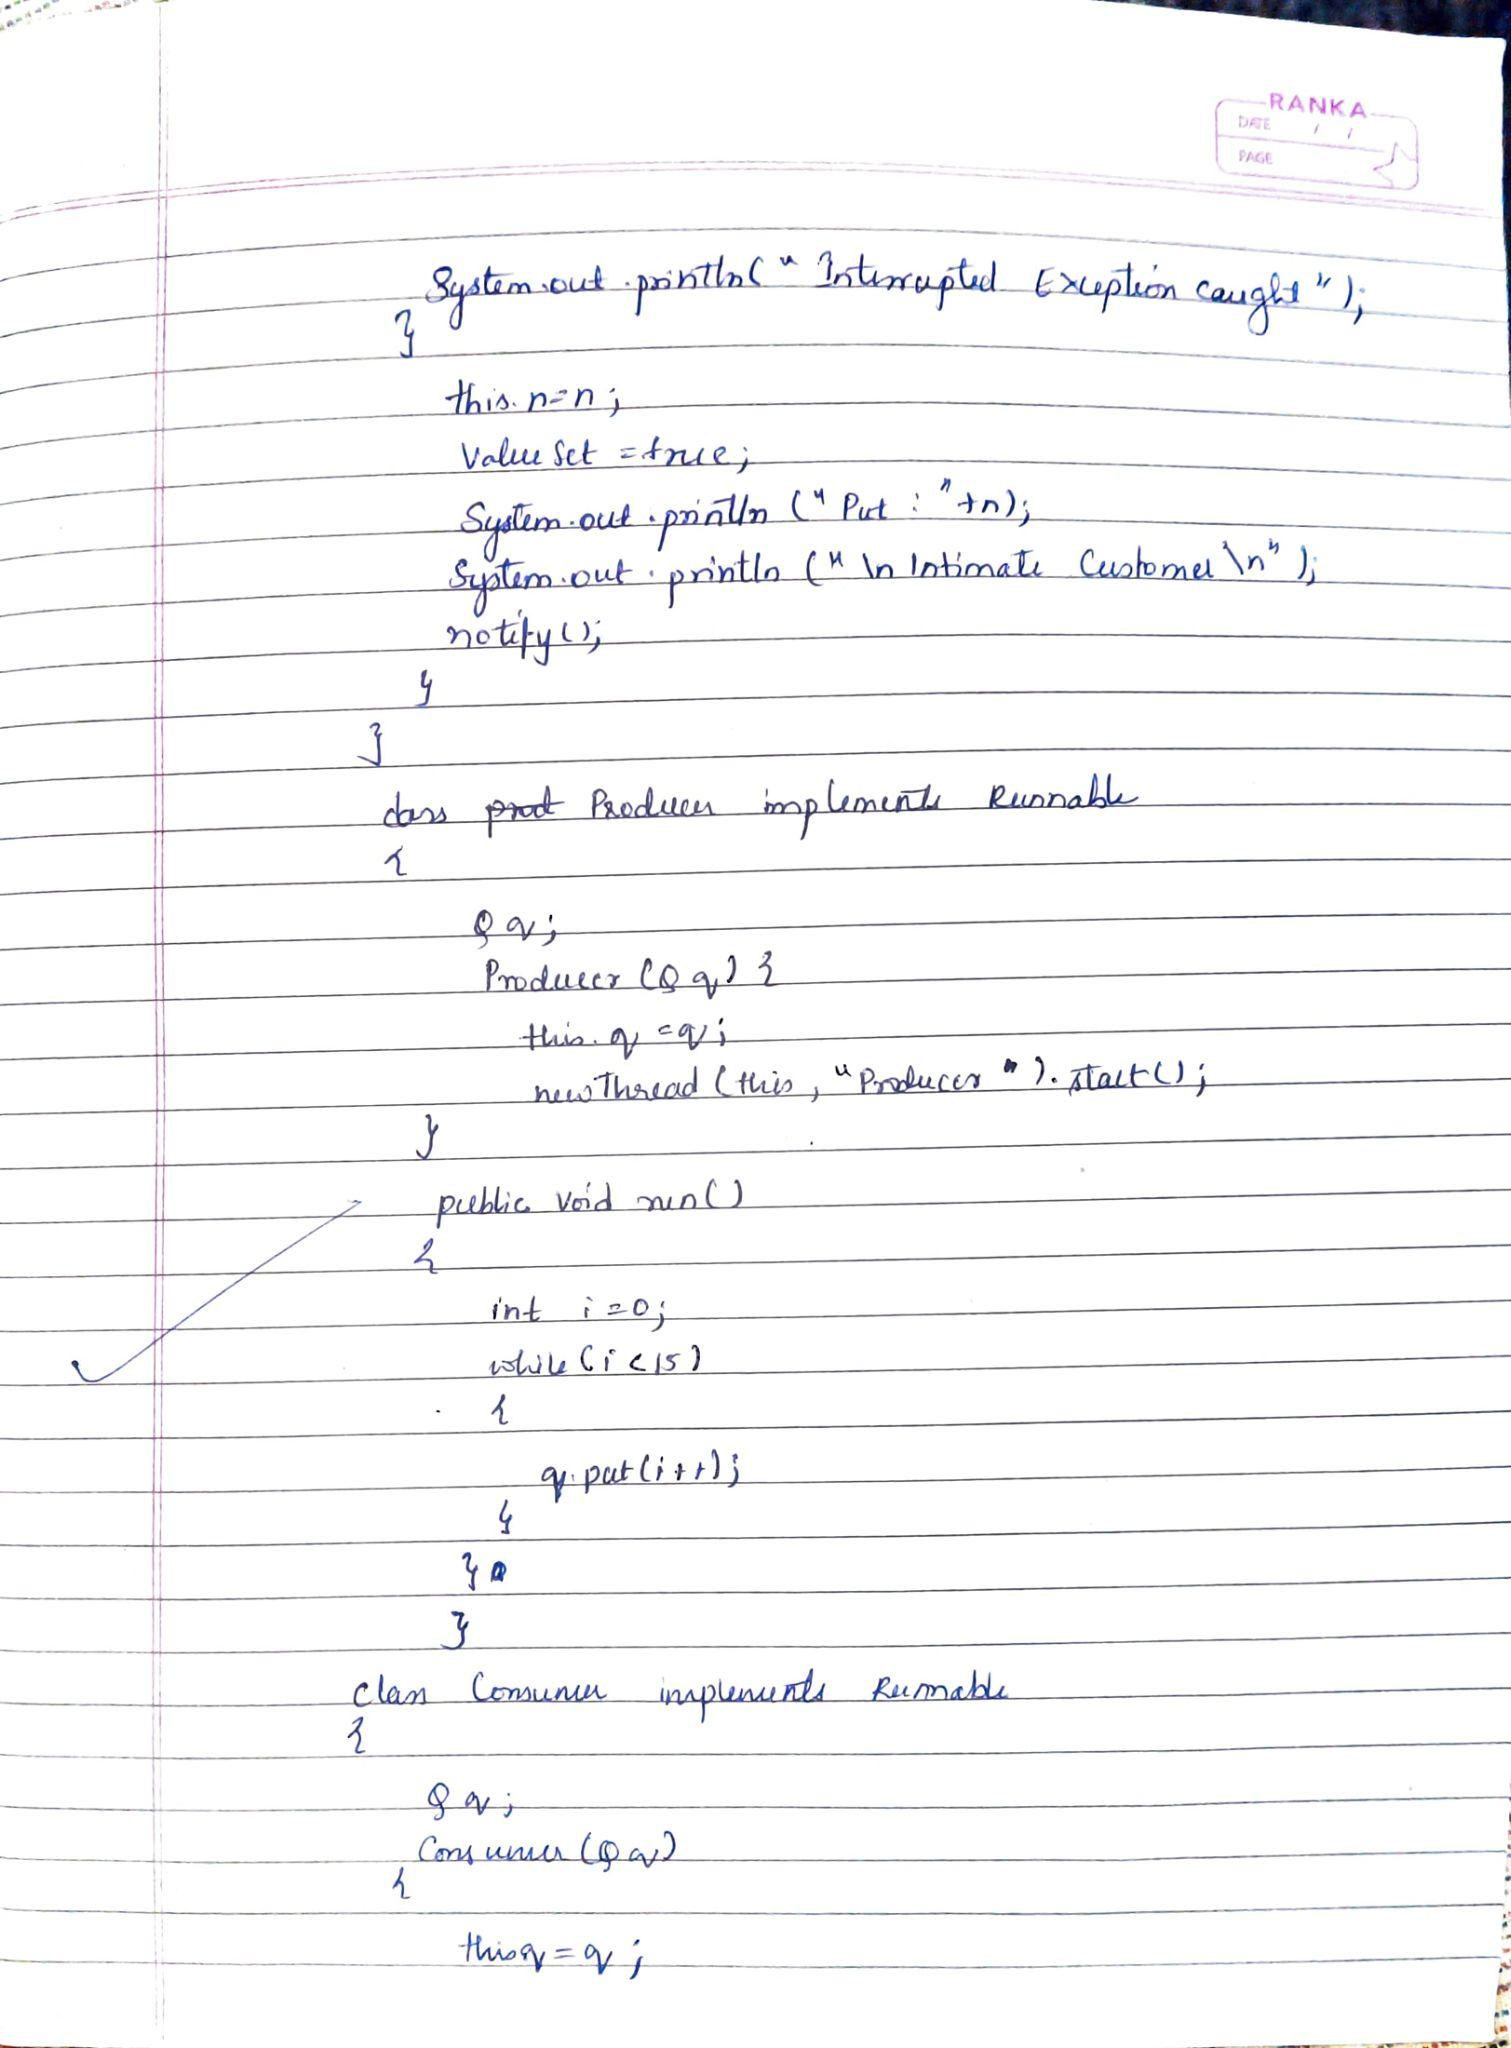 RANKA
DATE / /
PAGE
System.out.println(" Interrupted Exception caught ");
}
this.n=n;
Value Set = true;
System.out.println (" Put : "+n);
System.out.println (" \n Intimate Customer \n" );
notify();
}
}
class prod Producer implements Runnable
{
Q q;
Producer (Q q) {
this.q = q;
new Thread (this, "Producer "). start();
}
public void run()
{
int i=0;
while (i<15)
{
q.put(i++);
}
}
}
class Consumer implements Runnable
{
Q q;
Consumer (Q q)
{
this q = q ;